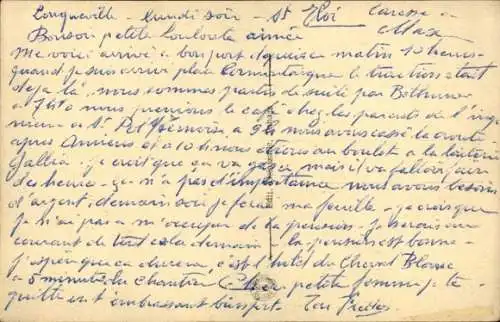 Longueville - lundi soir - St Eloi Caresse à Max
Bonsoir petite Louloute aimée
Me voici arrivé à bon port depuis ce matin 10 heures
quand je suis arrivé place Cormontaigne le traction était
déjà là nous sommes partis de suite par Béthune
à 7h10 nous prenions le café chez les parents de l'ingé
nieur à St Pol à 9h nous avons cassé la croute
après Amiens et à 10h nous étions au boulot à la laiterie
Gallia - je crois que ça va gazer mais il va falloir faire
des heures - ça n'a pas d'importance nous avons besoin
d'argent, demain soir je ferai ma feuille - je crois que
je n'ai pas à m'occuper de la pension, je serais au
courant de tout cela demain - la pension est bonne
j'espère que ça durera, c'est l'hôtel du Cheval Blanc
à 5 minutes du chantier petite femme je te
quitte en t'embrassant bien fort - Ton